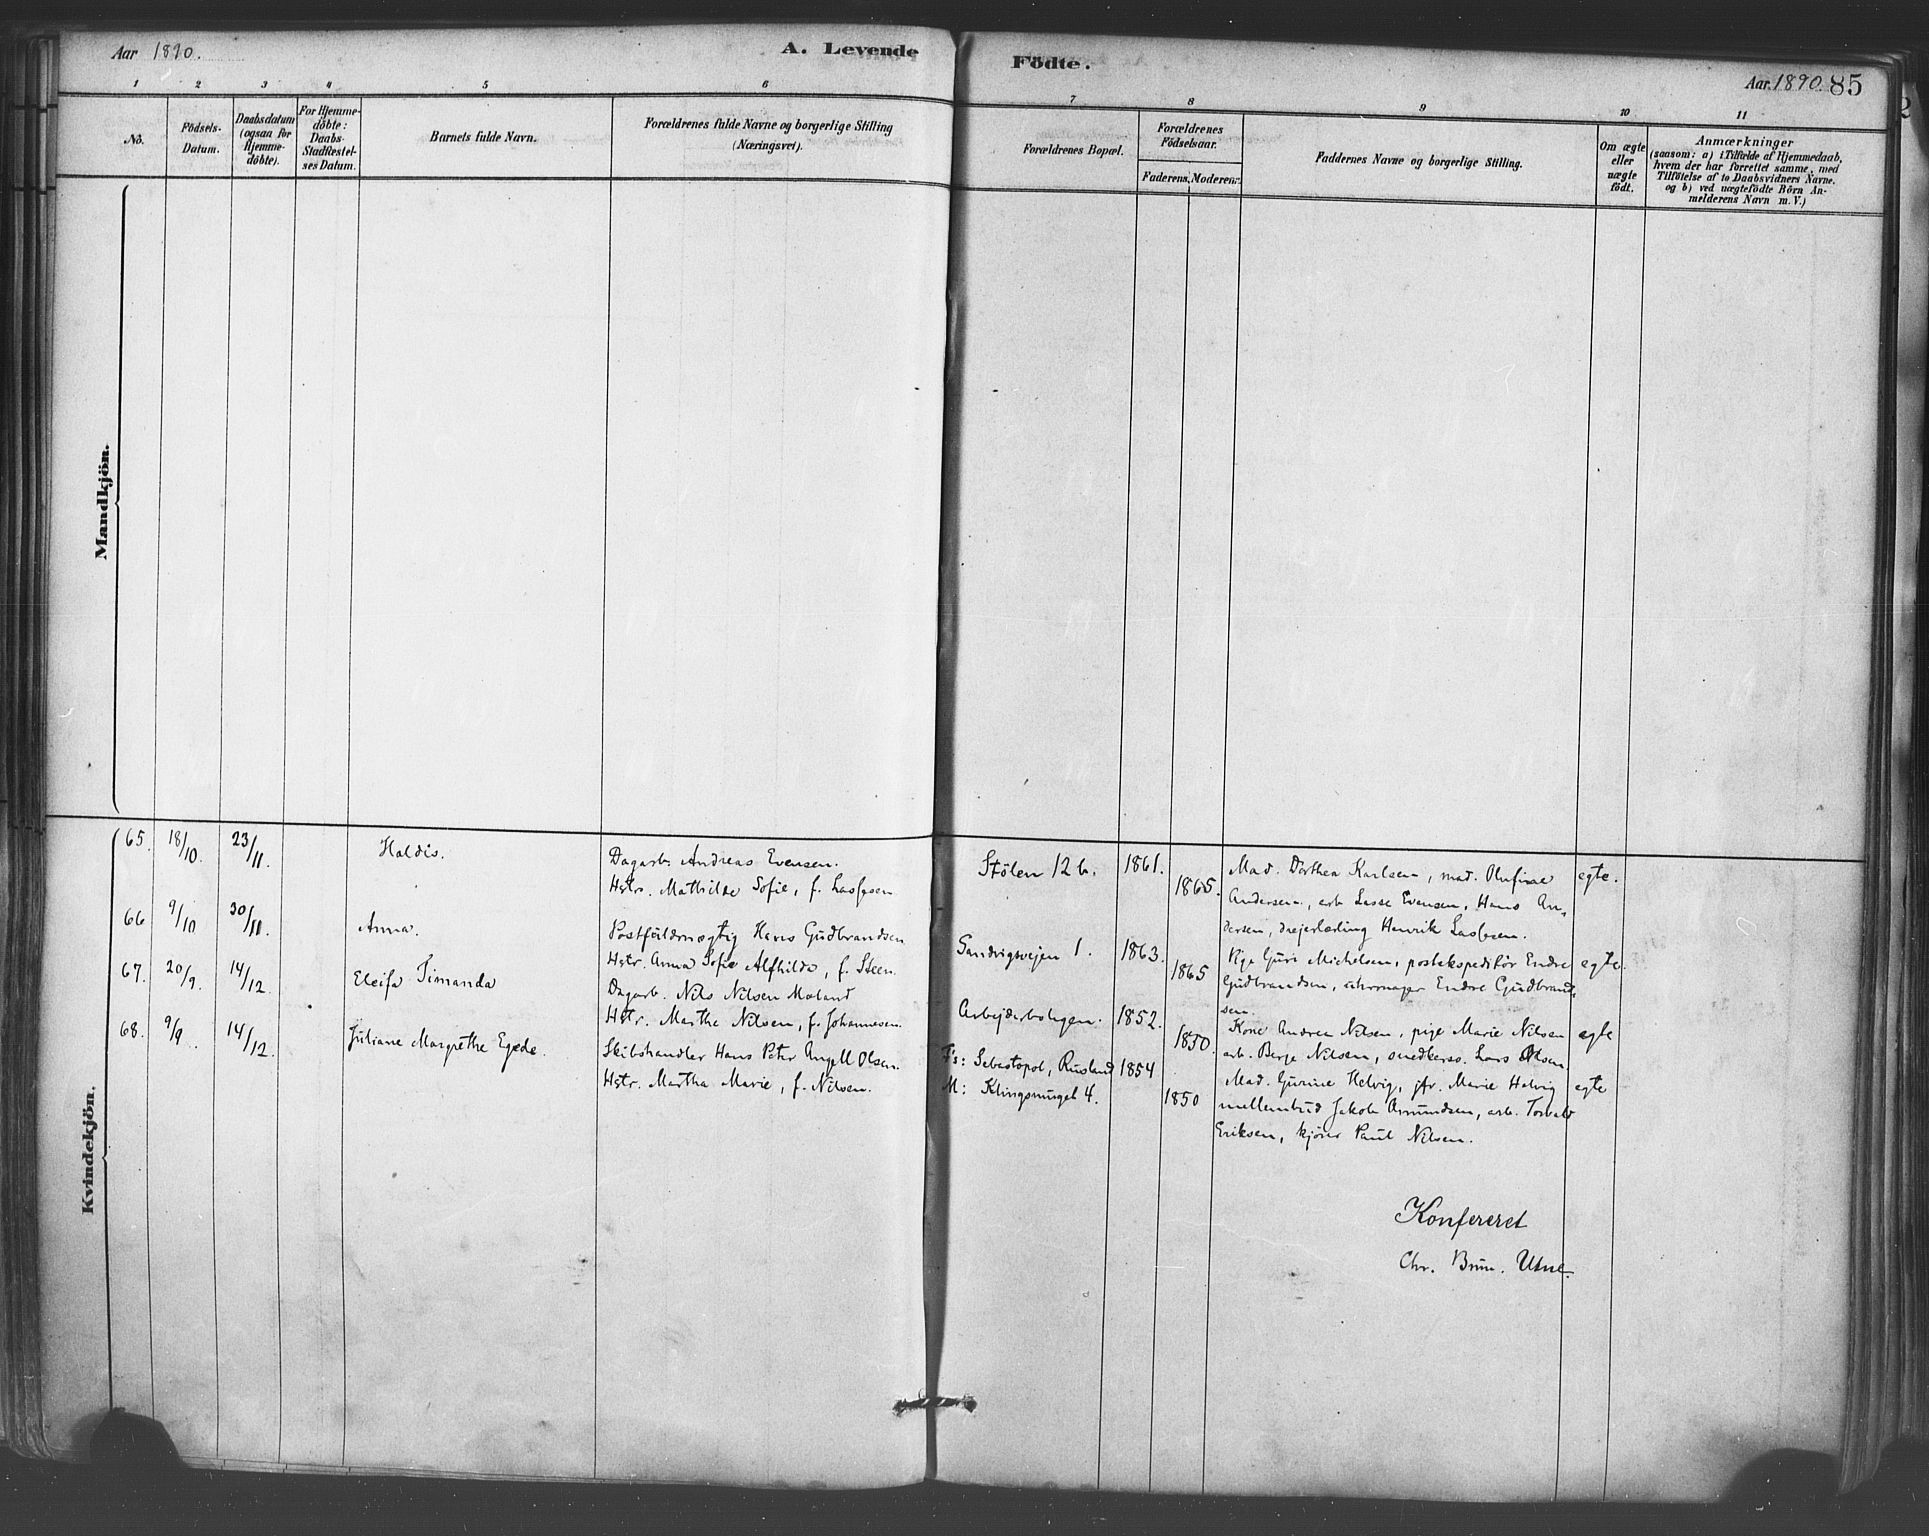 Aar 1890.
A. Levende
Födte.
Aar. 1890. 85
1 2 3 4 5 6
7 8 9 10 11
No.
Födsels-
Datum.
Daabsdatum
(ogsaa for
Hjemme-
döbte).
For Hjemme-
döbte:
Daabs-
Stadfæstel-
ses Datum.
Barnets fulde Navn.
Forældrenes fulde Navne og borgerlige Stilling
(Næringsvei).
Forældrenes Bopæl.
Forældrenes
Födselsaar.
Faderens. Moderens.
Faddernes Navne og borgerlige Stilling.
Om ægte
eller
uægte
födt.
Anmærkninger
(saasom: a) i Tilfælde af Hjemmedaab,
hvem der har forrettet samme, med
Tilföielse af to Daabsvidners Navne,
og b) ved uægtefödte Börn An-
melderens Navn m. V.)
Mandkjön.
Kvindekjön.
65. 18/10. 23/11. Haldis.
Dagarb. Andreas Evensen.
Hstr. Mathilde Sofie, f. Lassesen
Stölen 12 b. 1861. 1865.
Mad. Dorthea Karlsen, mad. Olufine
Andersen, arb. Lasse Evensen, Hans An-
dersen, drejerlærling Henrik Lassesen.
egte.
66 9/10 30/11. Anna.
Postfuldmægtig Hans Gudbrandsen
Hstr. Anna Sofie Alfhilda, f. Steen.
Sandvigsvejen 1. 1863. 1865
Pige Guri Michelsen, postekspeditör Endre
Gudbrandsen, uhrmager Endre Gudbrand-
sen.
egte.
67. 20/9. 14/12. Timanda
Dagarb. Nils Nilsen Moland
Hstr. Marthe Nilsen, f. Johannesen.
Arbejderboligen. 1852. 1850.
Kone Andrea Nilsen, pige Marie Nilsen
arb. Berje Nilsen, snedkersv. Lars Olsen
egte
68. 9/9. 14/12. Juliane Margrethe Egede.
Skibshandler Hans Peter Angell Olsen.
Hstr. Martha Marie, f. Nilsen.
F's: Sebastopol, Rusland 1854
M: Klingsmuget 4. 1850
Mad. Gurine Helvig, jfr. Marie Helvig
mellembud Jakob Amundsen, arb. Torvald
Eriksen, kjörer Paul Nilsen.
egte
Konfereret
Chr. Brun. Utne.